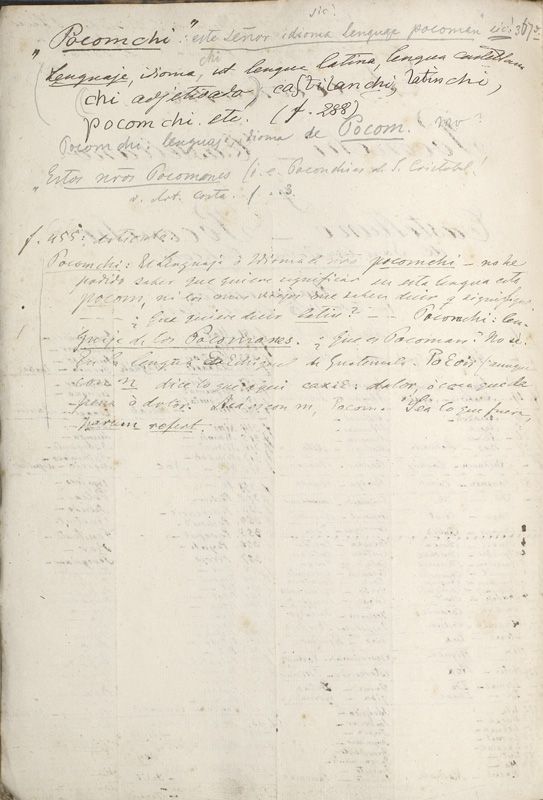 sic!
"Pocomchi": este señor idioma lenguaje pocoman sic! 367
chi
Lenguaje, idioma, ut lengua latina, lengua castellana
(chi adjetivado) castilanchi, latinchi,
pocomchi. etc. (f. 288)
Pocomchi: lenguaje idioma de Pocom.
"Estos nros Pocomanes (i. e. Pocomchies de S. Cristobal)
v. dot. costa. f. 3.
f. 455:
Pocomchi: El Lenguaje o Idioma de pocomchi – no he
podido saber que quiere significar en esta lengua este
pocom, ni los mas viejos me saben decir q significa
¿Que quiere decir latin? – – Pocomchi: len-
guaje de los Pocomanes. ¿Que es Pocoman? No sé
En la lengua de Guatemala Pocon (aunque
con n dice lo que aqui caxic: dolor, o cosa que da
pena o dolor. con m, Pocom. Sea lo que fuere,
parum refert.